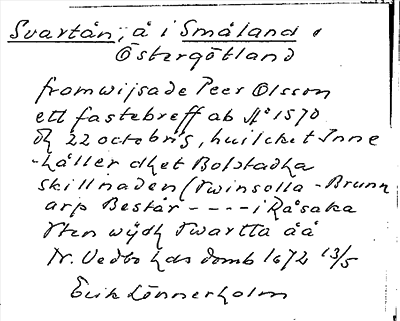 Svartån, å i Småland o
Östergötland
framwijsade Peer Olsson
ett fastebreff ab Aº 1570
dh 22 octobris, huilcket Inne
-håller dhet Bolstadha
skillnaden (Twinsolla - Brunn
arp Består - - - - i Råsaka
Sten wijdh Swartta åå
N. Vedbo hds domb 1672 13/5
Erik Lönnerholm